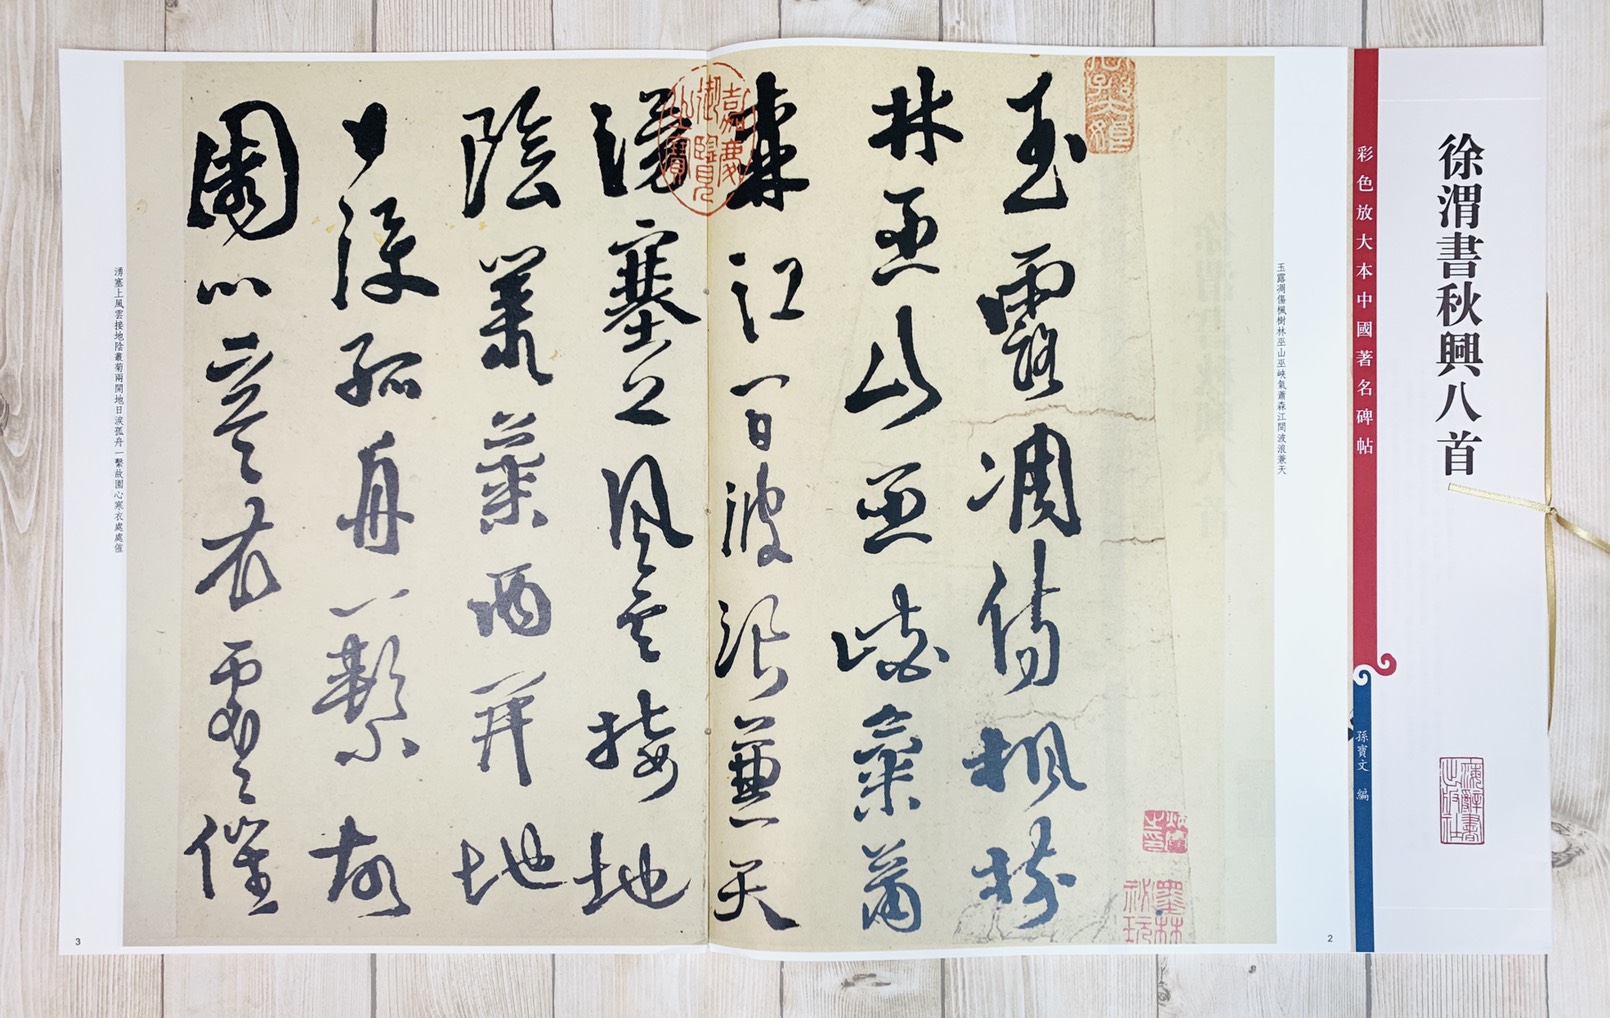 徐渭書秋興八首
上海辭書出版社
彩色放大本中國著名碑帖
孫寶文 編
玉露凋傷楓樹林巫山巫峽氣蕭森江間波浪兼天
2
玉露凋傷楓樹
林巫山巫峽氣蕭
森江間波浪兼天
湧塞上風雲接地
陰叢菊兩開地
日淚孤舟一繫故
園心寒衣處處催
嘉慶御覽之寶
墨林秘玩
湧塞上風雲接地陰叢菊兩開地日淚孤舟一繫故園心寒衣處處催
3